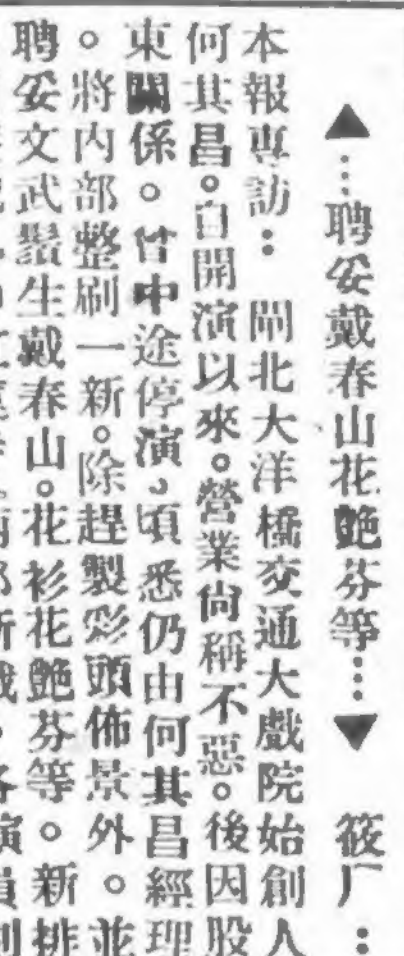 ▲…聘妥戴春山花艶芬等…▼　筱厂：
本報專訪：　閘北大洋橋交通大戲院始創人
何其昌。自開演以來。營業尙稱不惡。後因股
東關係。曾中途停演，頃悉仍由何其昌經理
。將內部整刷一新。除趕製彩頭佈景外。並
聘妥文武鬚生戴春山。花衫花艶芬等。新排